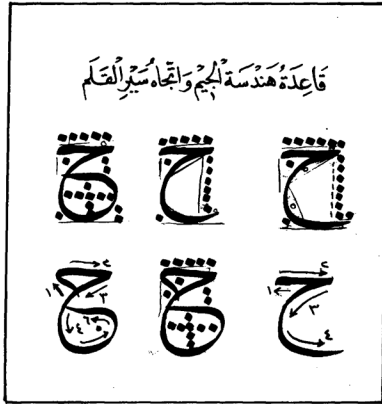 قَاعِدَةُ هَنْدَسَةِ الْجِيمِ وَاتِّجَاهُ سَيْرِ الْقَلَمِ
ح ح ح
ح ح ح
٢ ١ ٣ ٤
٢ ١ ٣ ٤ ٦